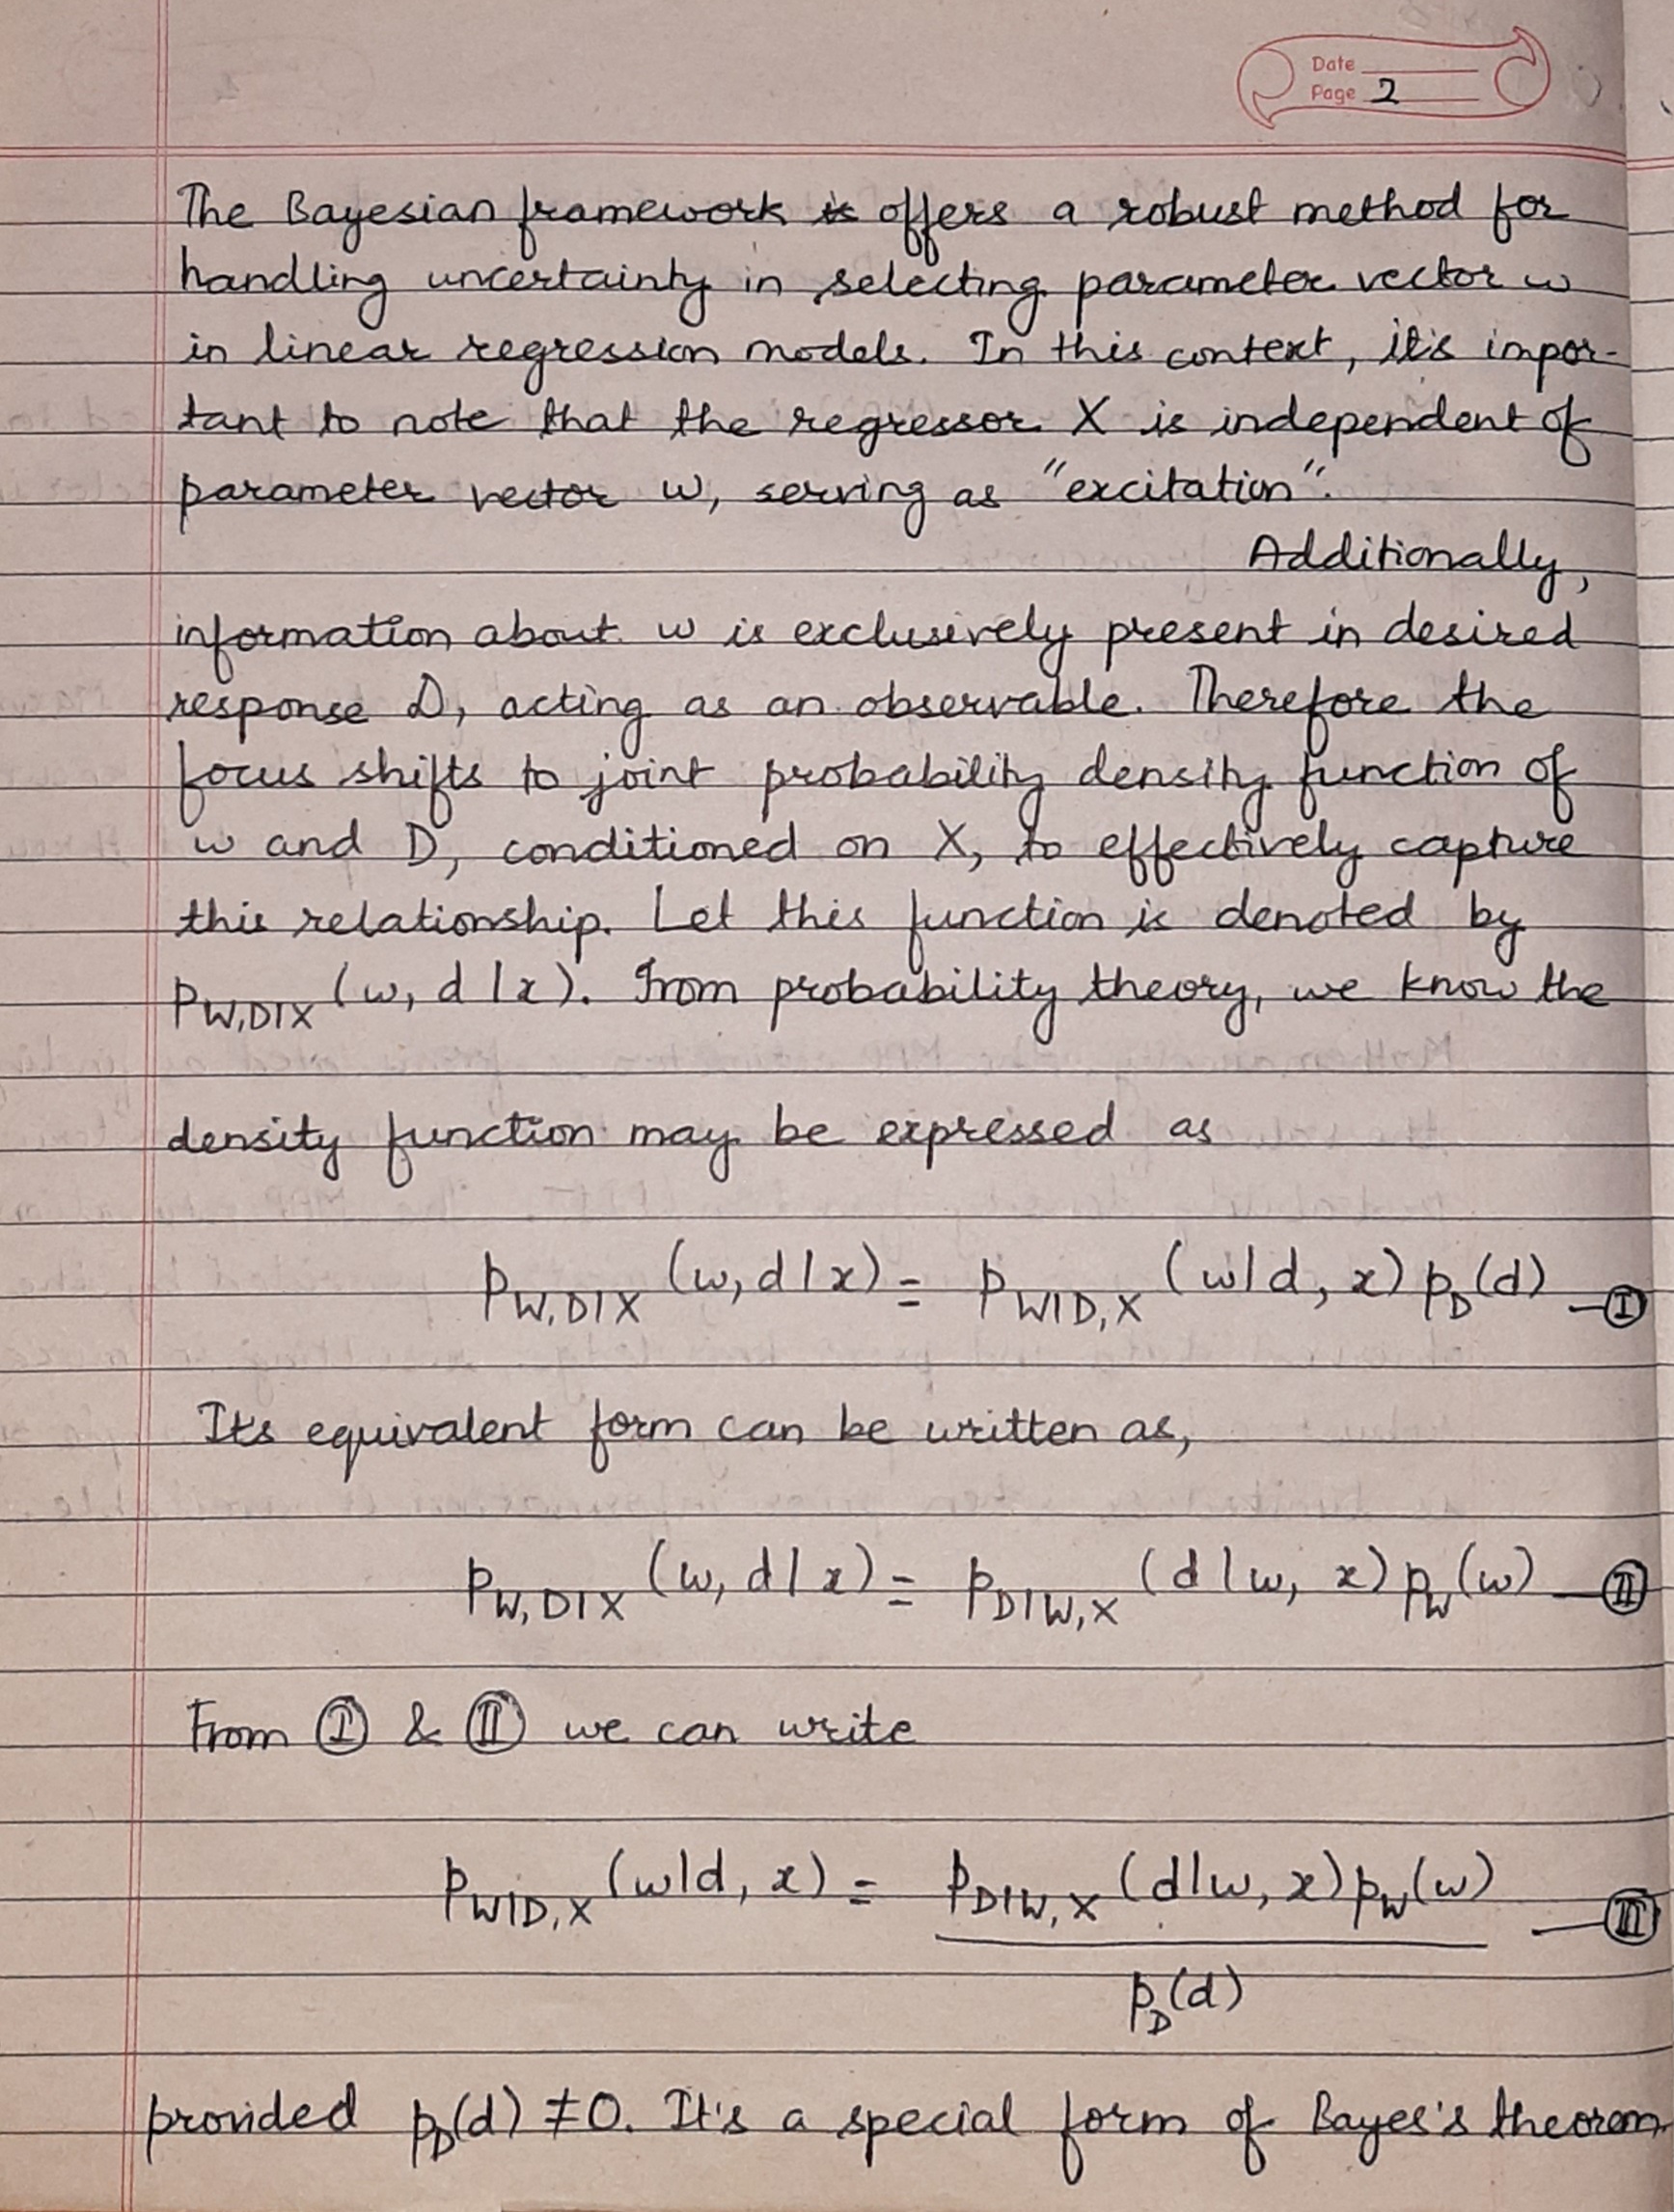 Date
Page 2
The Bayesian framework offers a robust method for
handling uncertainty in selecting parameter vector w
in linear regression models. In this context, it's impor-
tant to note that the regressor X is independent of
parameter vector w, serving as "excitation".
Additionally,
information about w is exclusively present in desired
response D, acting as an observable. Therefore the
focus shifts to joint probability density function of
w and D, conditioned on X, to effectively capture
this relationship. Let this function is denoted by
p_{W,D|X} (w, d | x). From probability theory, we know the
density function may be expressed as
p_{W,D|X} (w, d | x) = p_{W|D,X} (w | d, x) p_D(d) — Ⓘ
Its equivalent form can be written as,
p_{W,D|X} (w, d | x) = p_{D|W,X} (d | w, x) p_W(w) — (II)
From (I) & (II) we can write
p_{W|D,X} (w | d, x) = p_{D|W,X} (d | w, x) p_W(w) — (III)
p_D(d)
provided p_D(d) ≠ 0. It's a special form of Bayes's theorem.